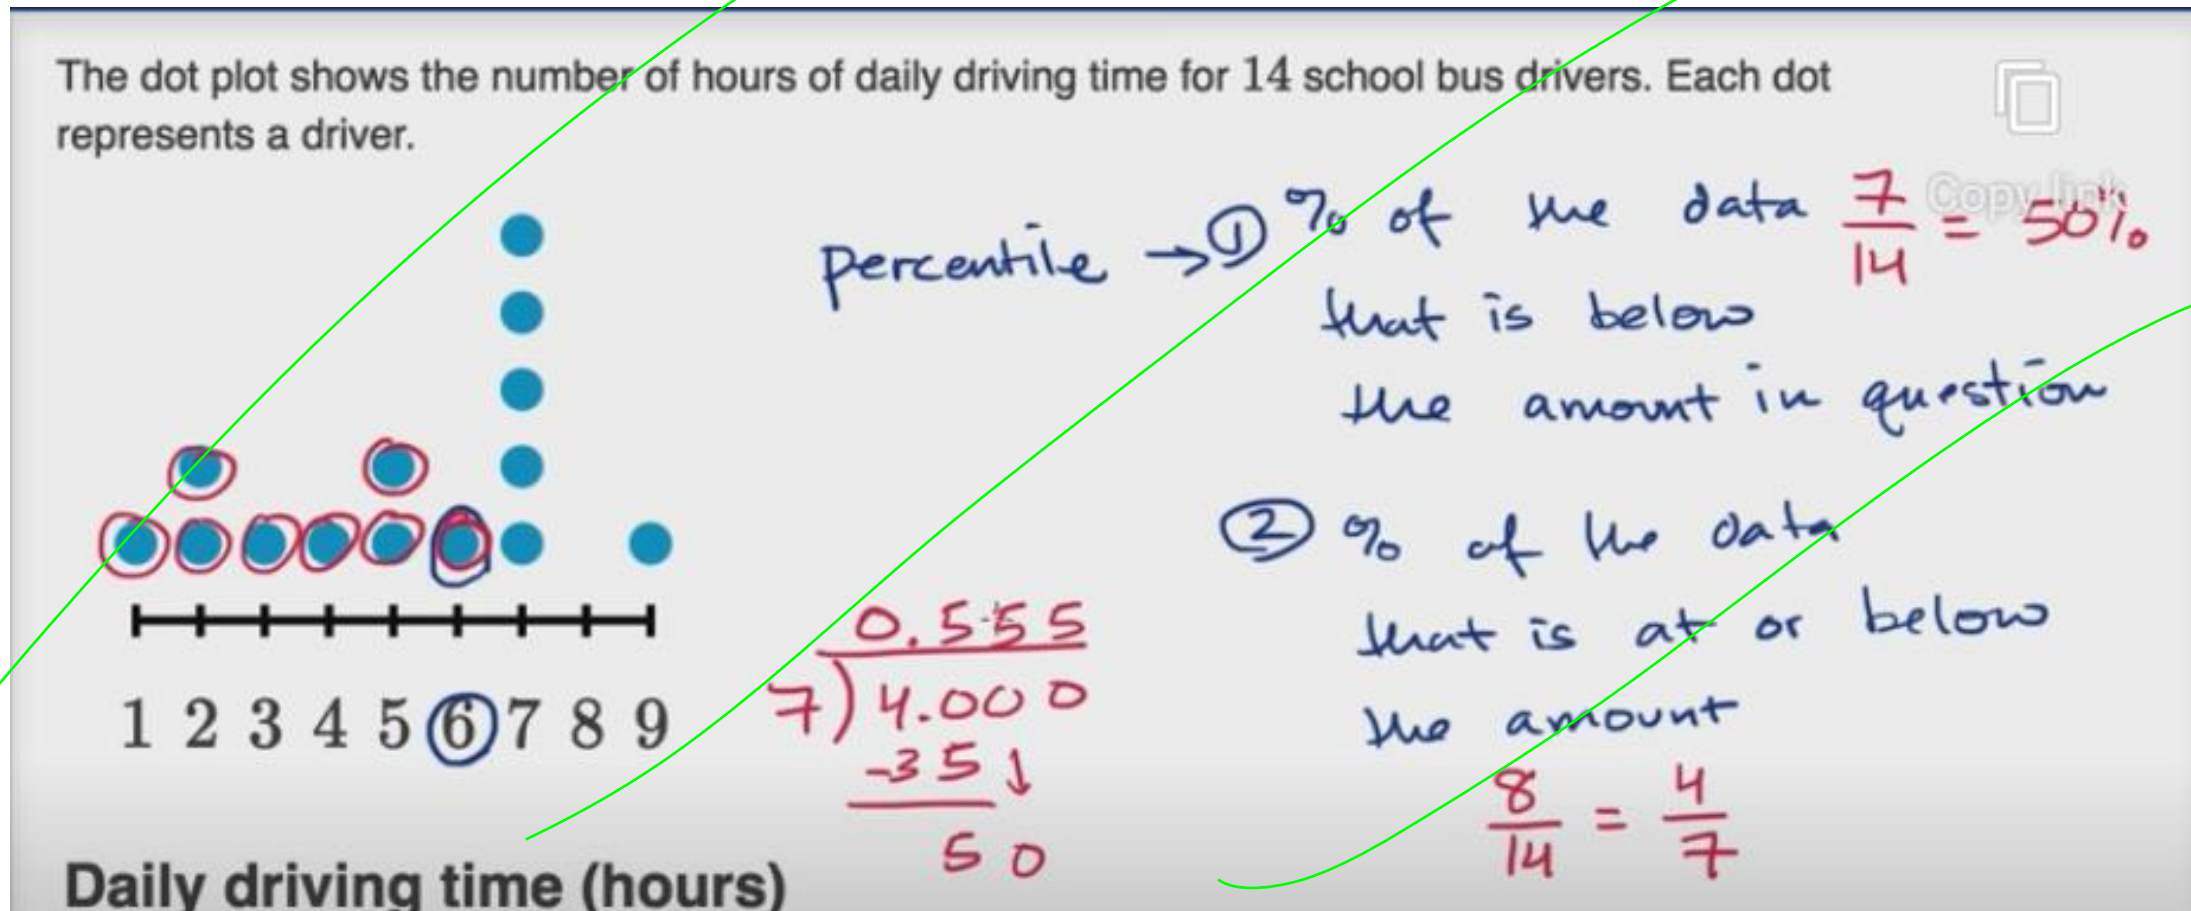 The dot plot shows the number of hours of daily driving time for 14 school bus drivers. Each dot
represents a driver.
Copy link
percentile → ① % of the data 7/14 = 50%
that is below
the amount in question
② % of the data
that is at or below
the amount
8/14 = 4/7
0.555
7)4.000
-35↓
50
1 2 3 4 5 6 7 8 9
Daily driving time (hours)